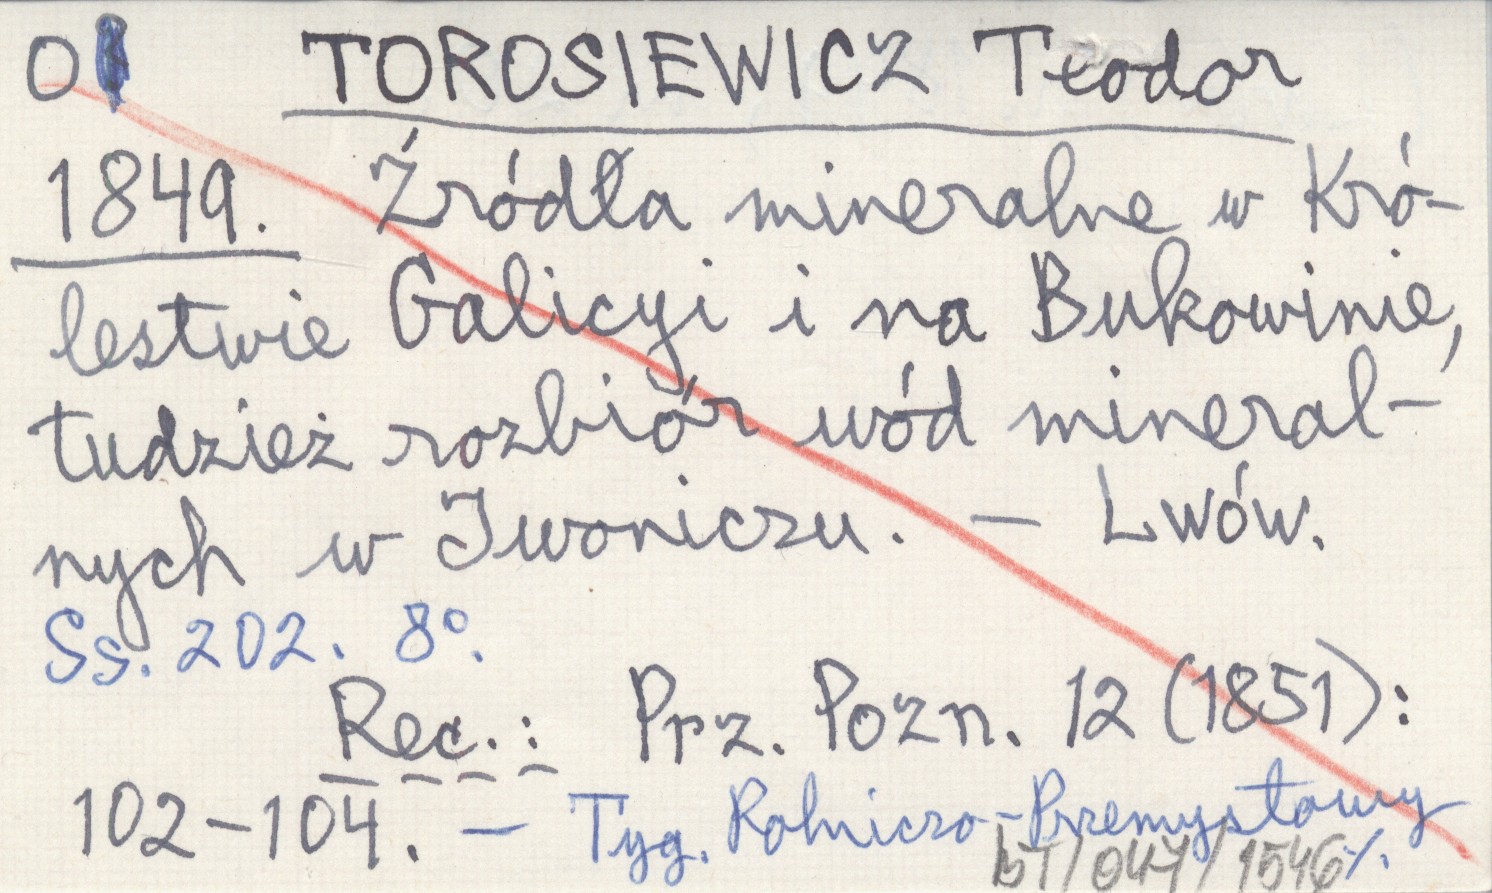 O TOROSIEWICZ Teodor
1849. Źródła mineralne w Kró-
lestwie Galicyi i na Bukowinie,
tudzież rozbiór wód mineral-
nych w Iwoniczu. — Lwów.
Ss. 202. 8°.
Rec.: Prz. Pozn. 12 (1851):
102-104. — Tyg. Rolniczo-Przemysłowy
bT/047/1546/.